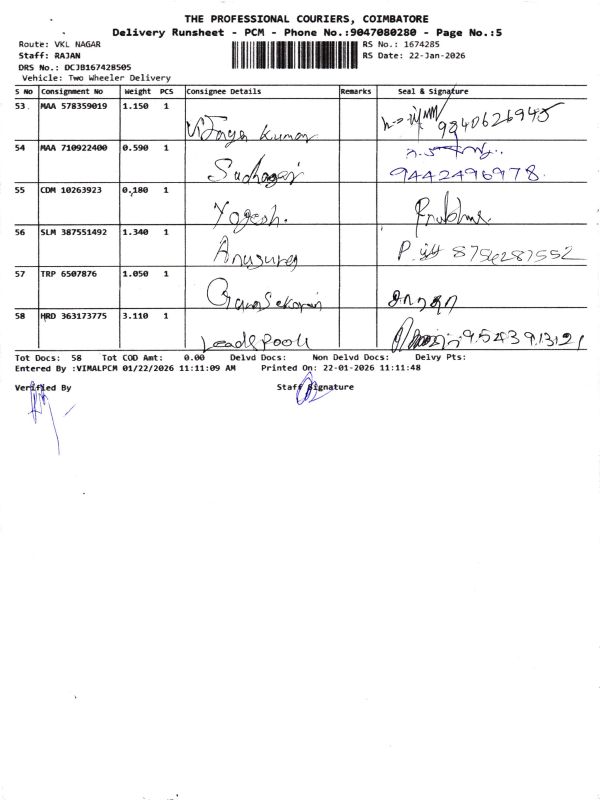 THE PROFESSIONAL COURIERS, COIMBATORE
Delivery Runsheet - PCM - Phone No.:9047080280 - Page No.:5
Route: VKL NAGAR RS No.: 1674285
Staff: RAJAN RS Date: 22-Jan-2026
DRS No.: DCJB167428505
Vehicle: Two Wheeler Delivery
S No Consignment No Weight PCS Consignee Details Remarks Seal & Signature
53 MAA 578359019 1.150 1 Vijaya Kumar 9840626945
54 MAA 710922400 0.590 1 9442496978
55 CDM 10263923 0.180 1 Yogesh. Prabhu
56 SLM 387551492 1.340 1 Anusurea 8756287552
57 TRP 6507876 1.050 1
58 HRD 363173775 3.110 1 9524391321
Tot Docs: 58 Tot COD Amt: 0.00 Delvd Docs: Non Delvd Docs: Delvy Pts:
Entered By :VIMALPCM 01/22/2026 11:11:09 AM Printed On: 22-01-2026 11:11:48
Verified By Staff Signature